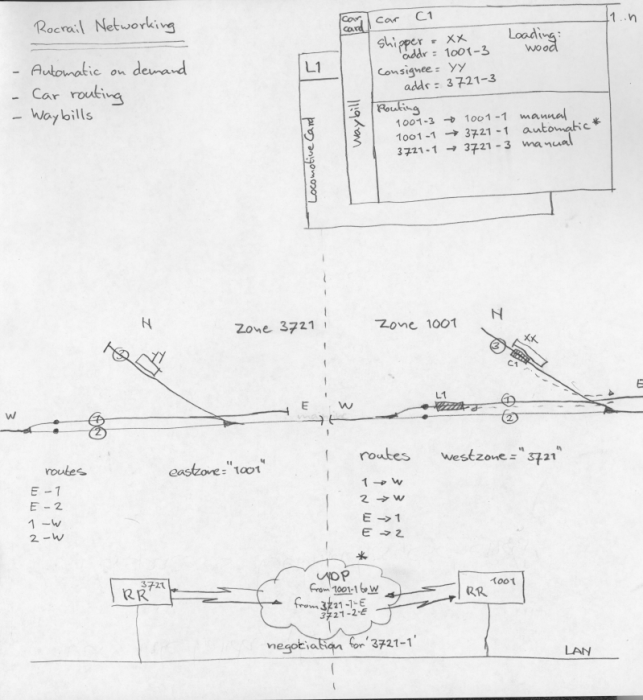 Rocrail Networking
- Automatic on demand
- Car routing
- Waybills
L1
Locomotive Card
car card
Waybill
car C1
1...n
Shipper = XX
addr = 1001-3
Loading: wood
Consignee = YY
addr = 3721-3
Routing
1001-3 → 1001-1 manual
1001-1 → 3721-1 automatic *
3721-1 → 3721-3 manual
N
Zone 3721
3
YY
W
1
2
E
routes
eastzone="1001"
E-1
E-2
1-W
2-W
Zone 1001
N
3
XX
C1
W
L1
1
2
E
routes
westzone="3721"
1 → W
2 → W
E → 1
E → 2
*
UDP
from 1001-1 to W
from 3721-1-E
3721-2-E
RR 3721
RR 1001
negotiation for '3721-1'
LAN